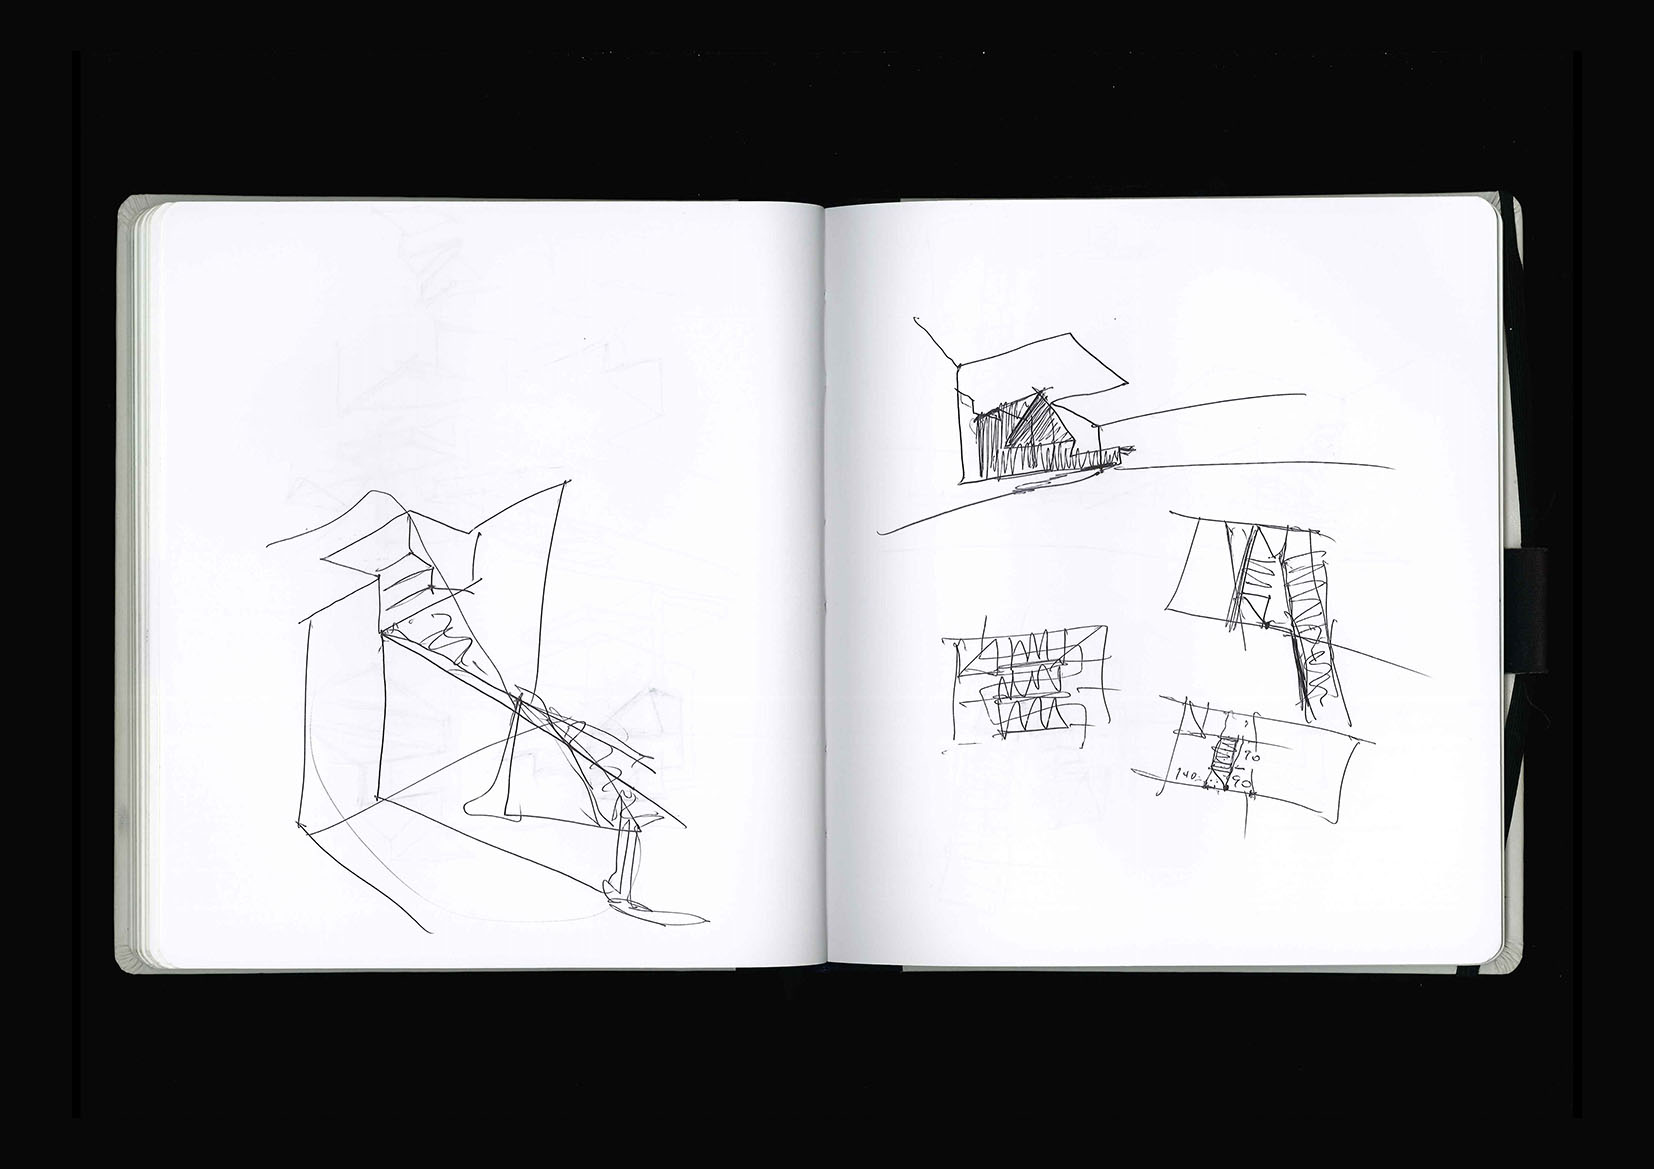 70
140
90